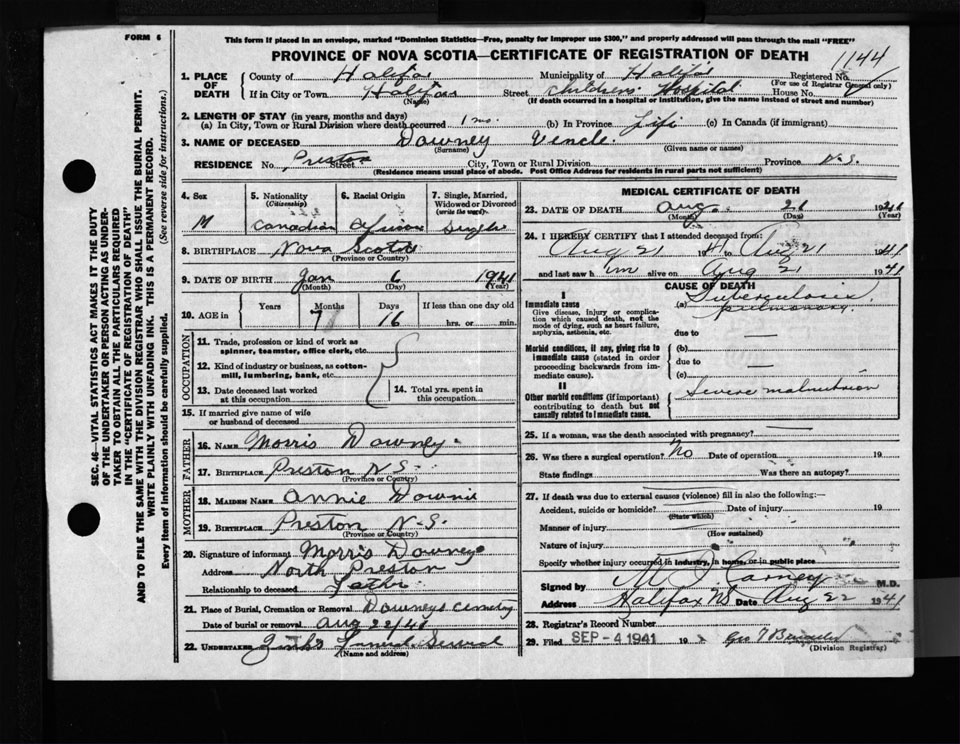 FORM 6
This form if placed in an envelope, marked "Dominion Statistics—Free, penalty for improper use $300," and properly addressed will pass through the mail "FREE"
PROVINCE OF NOVA SCOTIA—CERTIFICATE OF REGISTRATION OF DEATH
1144
1. PLACE OF DEATH
County of Halifax Municipality of Halifax Registered No.
(For use of Registrar General only)
If in City or Town Halifax Street Childrens Hospital House No.
(Name) (If death occurred in a hospital or institution, give the name instead of street and number)
2. LENGTH OF STAY (in years, months and days)
(a) In City, Town or Rural Division where death occurred 1 mo. (b) In Province Life (c) In Canada (if immigrant)
3. NAME OF DECEASED Downey
(Surname) (Given name or names)
RESIDENCE No. Preston Street City, Town or Rural Division Province N.S.
(Residence means usual place of abode. Post Office Address for residents in rural parts not sufficient)
4. Sex M
5. Nationality (Citizenship) Canadian
6. Racial Origin African
7. Single, Married, Widowed or Divorced (write the word) Single
8. BIRTHPLACE Nova Scotia
(Province or Country)
9. DATE OF BIRTH Jan 6 1941
(Month) (Day) (Year)
10. AGE in Years Months 7 Days 16 If less than one day old
hrs. or min.
OCCUPATION
11. Trade, profession or kind of work as spinner, teamster, office clerk, etc.
12. Kind of industry or business, as cotton-mill, lumbering, bank, etc.
13. Date deceased last worked at this occupation
14. Total yrs. spent in this occupation
15. If married give name of wife or husband of deceased
FATHER
16. NAME Morris Downey
17. BIRTHPLACE Preston N.S.
(Province or Country)
MOTHER
18. MAIDEN NAME Annie Downie
19. BIRTHPLACE Preston N.S.
(Province or Country)
20. Signature of informant Morris Downey
Address North Preston
Relationship to deceased Father
21. Place of Burial, Cremation or Removal Downeys Cemetry
Date of burial or removal Aug 22/41
22. UNDERTAKER
(Name and address)
MEDICAL CERTIFICATE OF DEATH
23. DATE OF DEATH Aug. 19
(Month) (Day) (Year)
24. I HEREBY CERTIFY that I attended deceased from:
Aug 21 1941 Aug 21 1941
and last saw him alive on Aug 21 1941
CAUSE OF DEATH
I
Immediate cause
Give disease, injury or complication which caused death, not the mode of dying, such as heart failure, asphyxia, asthenia, etc.
(a) Tuberculosis pulmonary.
due to
Morbid conditions, if any, giving rise to immediate cause (stated in order proceeding backwards from immediate cause).
(b)
due to
(c)
II
Other morbid conditions (if important) contributing to death but not causally related to immediate cause.
Severe malnutrition
25. If a woman, was the death associated with pregnancy?
26. Was there a surgical operation? No Date of operation 19
State findings Was there an autopsy?
27. If death was due to external causes (violence) fill in also the following:—
Accident, suicide or homicide? Date of injury 19
(State which)
Manner of injury
(How sustained)
Nature of injury
Specify whether injury occurred in industry, in home, or in public place
Signed by M J Carney M.D.
Address Halifax NS Date Aug 22 1941
28. Registrar's Record Number
29. Filed SEP -4 1941 19
(Division Registrar)
SEC. 46—VITAL STATISTICS ACT MAKES IT THE DUTY
OF THE UNDERTAKER OR PERSON ACTING AS UNDERTAKER TO OBTAIN ALL THE PARTICULARS REQUIRED
IN THE "CERTIFICATE OF REGISTRATION OF DEATH"
AND TO FILE THE SAME WITH THE DIVISION REGISTRAR WHO SHALL ISSUE THE BURIAL PERMIT.
WRITE PLAINLY WITH UNFADING INK. THIS IS A PERMANENT RECORD.
Every item of information should be carefully supplied. (See reverse side for instructions.)